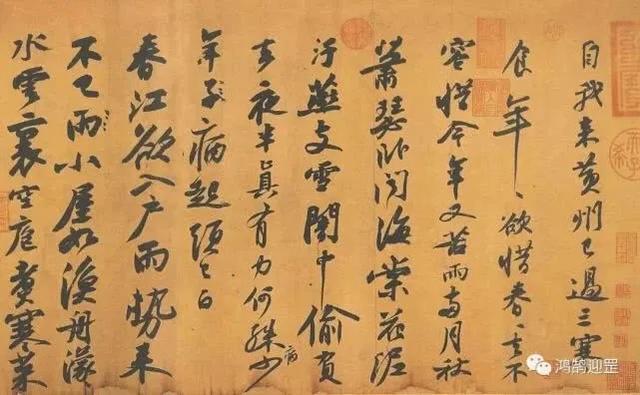 自我来黄州已過三寒
食年〻欲惜春〻去不
容惜今年又苦雨兩月秋
蕭瑟卧聞海棠花泥
汙燕支雪闇中偷負
去夜半真有力何殊少
病
年子病起頭已白
春江欲入户雨勢来
不已雨小屋如漁舟濛〻
水雲裏空庖煮寒菜
鸿鹄迎罡